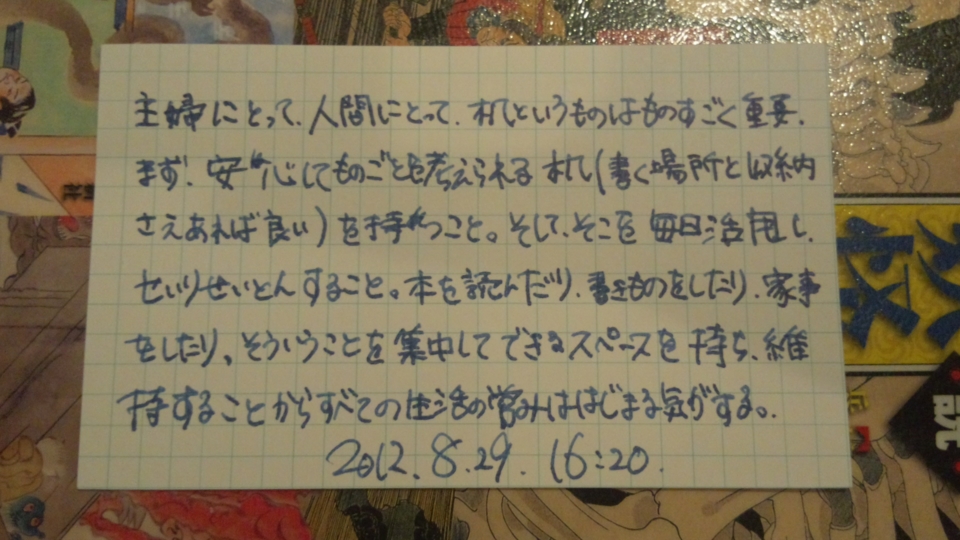 主婦にとって、人間にとって、机というものはものすごく重要、
まず、安心してものごとを考えられる机(書く場所と収納
さえあれば良い)を持つこと。そして、そこを毎日活用し、
せいりせいとんすること。本を読んだり、書きものをしたり、家事
をしたり、そういうことを集中してできるスペースを持ち、維
持することからすべての生活の営みははじまる気がする。
2012.8.29. 16:20.